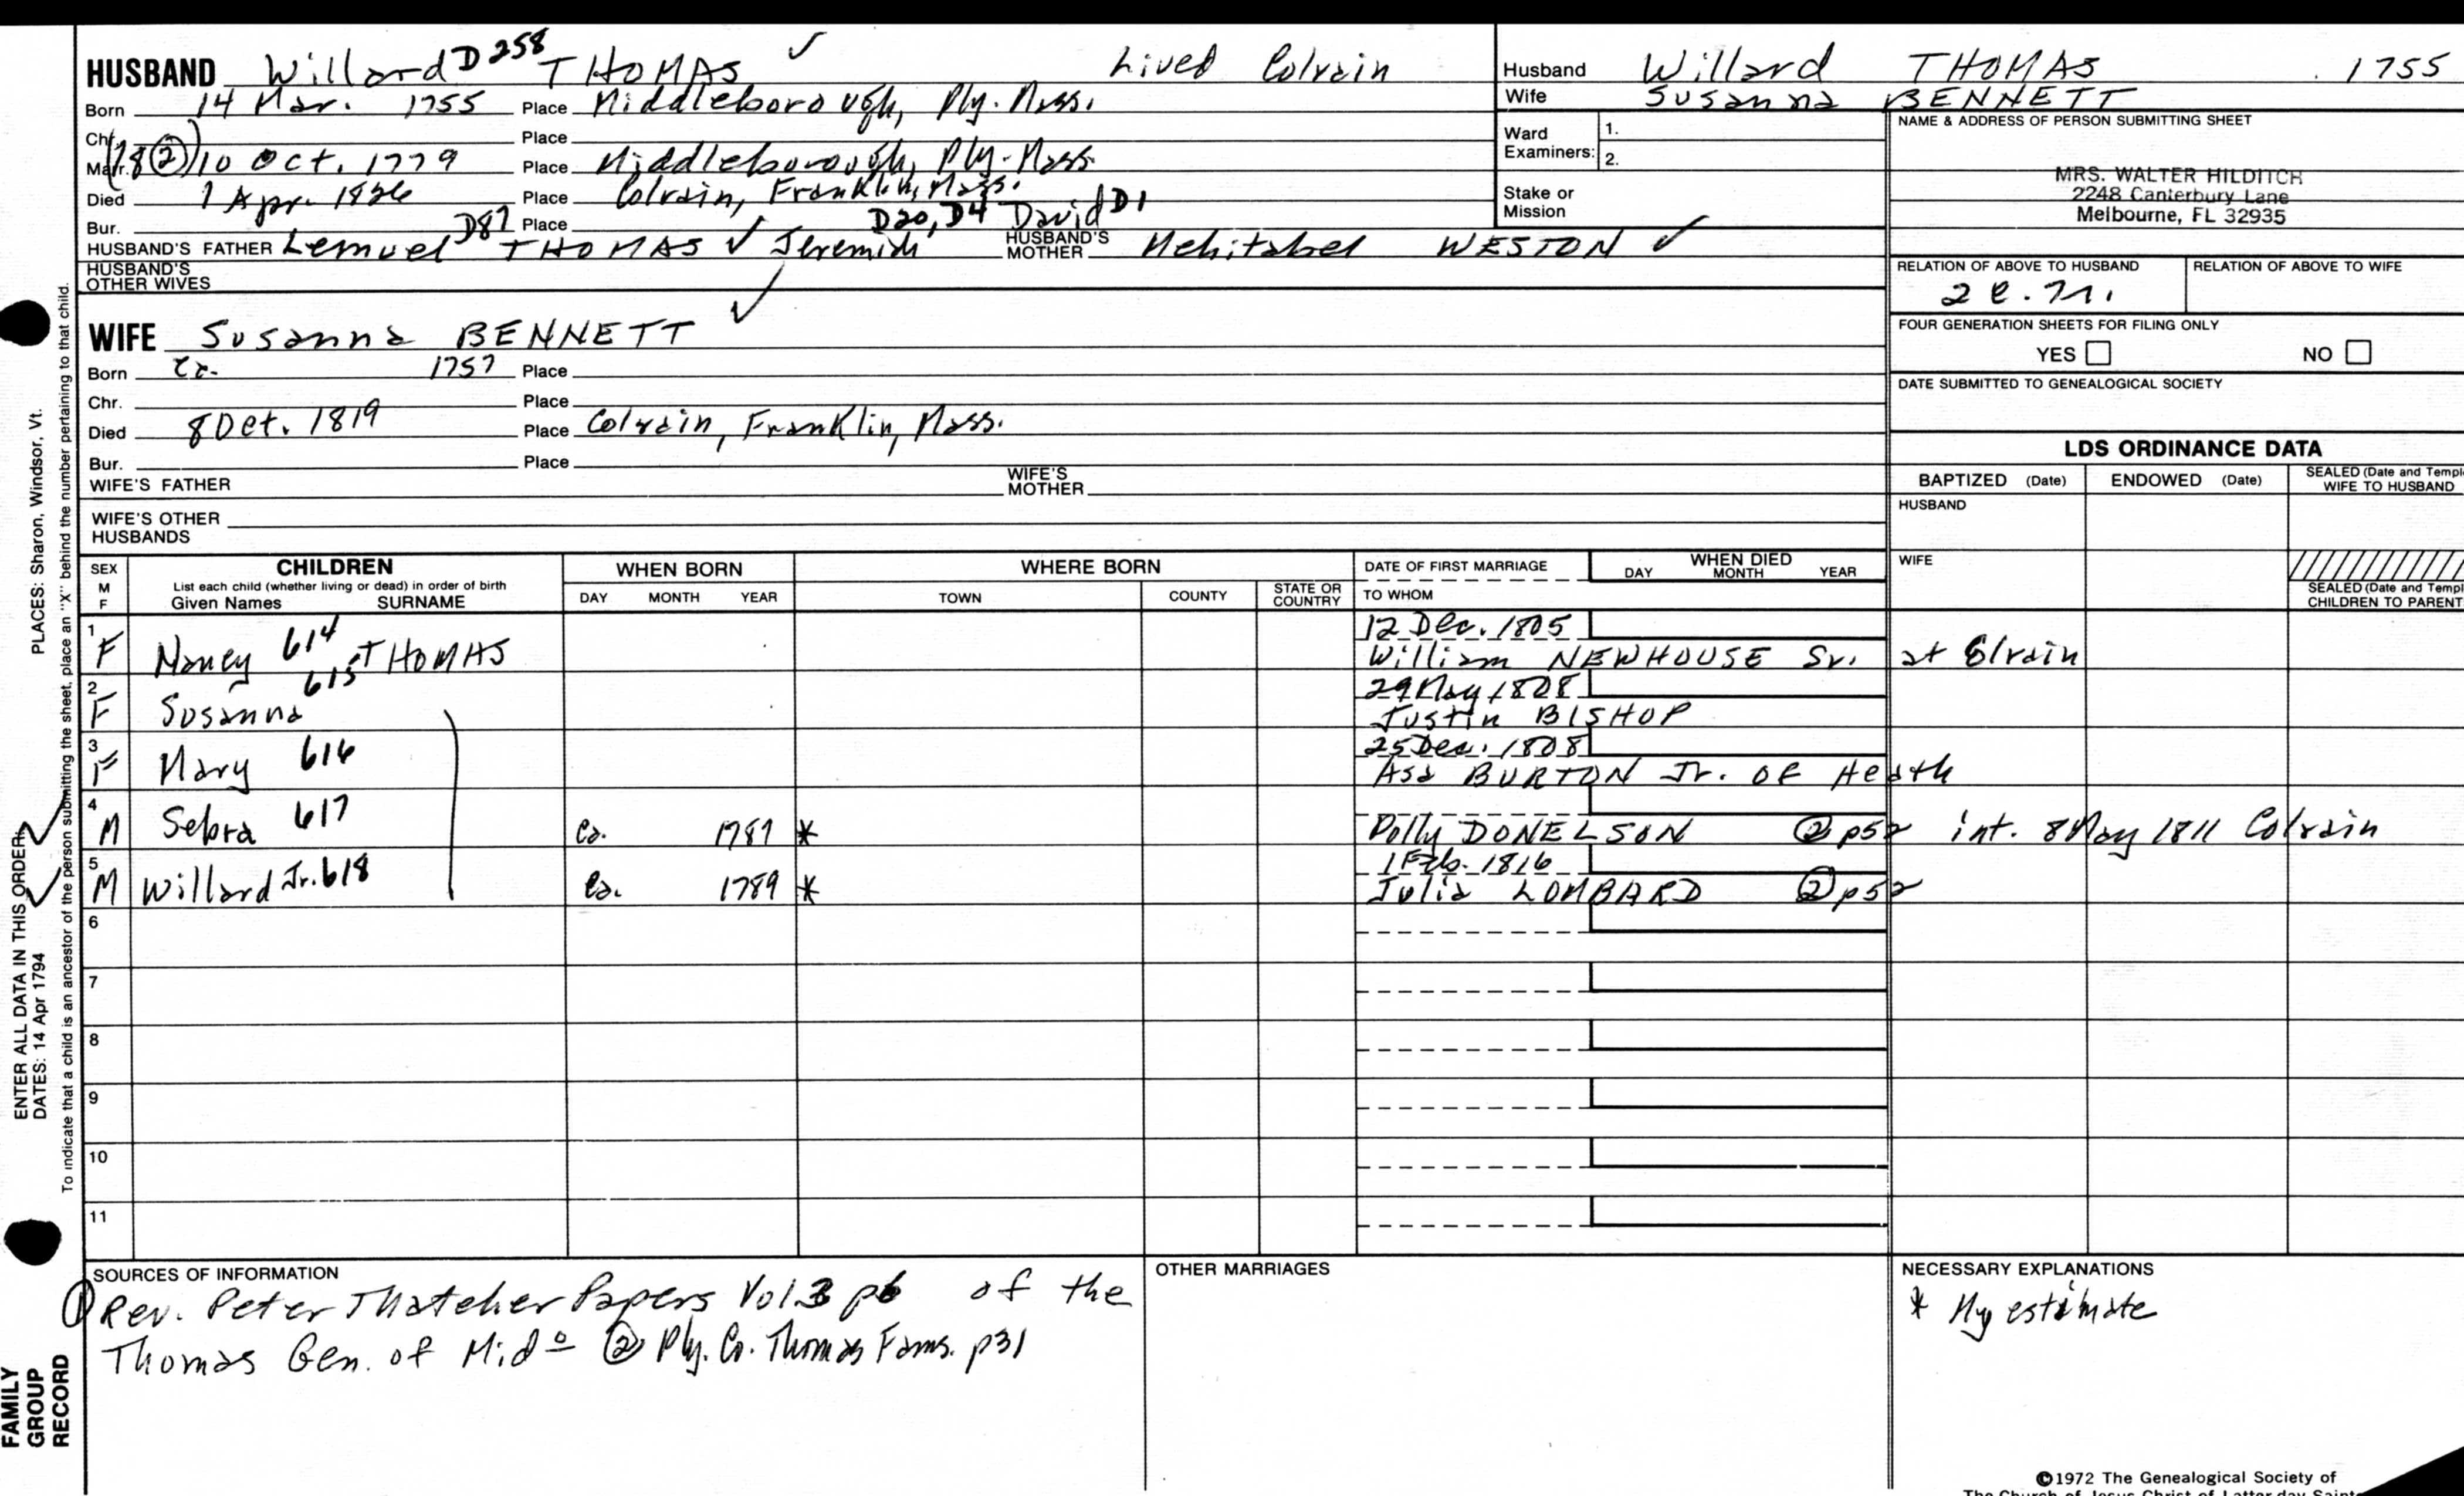 HUSBAND Willard D258 THOMAS ✓ Lived Colrain
Born 14 Mar. 1755 Place Middleborough, Ply. Mass.
Chr. Place
Marr. (1&②) 10 Oct. 1779 Place Middleborough, Ply. Mass.
Died 1 Apr. 1826 Place Colrain, Franklin, Mass.
Bur. Place
HUSBAND'S FATHER Lemuel D87 THOMAS ✓ Jeremiah D20, D4 David D1 HUSBAND'S MOTHER Mehitabel WESTON ✓
HUSBAND'S OTHER WIVES
WIFE Susanna BENNETT ✓
Born Ca. 1757 Place
Chr. Place
Died 8 Oct. 1819 Place Colrain, Franklin, Mass.
Bur. Place
WIFE'S FATHER WIFE'S MOTHER
WIFE'S OTHER HUSBANDS
Husband Willard THOMAS 1755
Wife Susanna BENNETT
Ward Examiners: 1.
2.
Stake or Mission
NAME & ADDRESS OF PERSON SUBMITTING SHEET
MRS. WALTER HILDITCH
2248 Canterbury Lane
Melbourne, FL 32935
RELATION OF ABOVE TO HUSBAND RELATION OF ABOVE TO WIFE
FOUR GENERATION SHEETS FOR FILING ONLY
YES NO
DATE SUBMITTED TO GENEALOGICAL SOCIETY
LDS ORDINANCE DATA
BAPTIZED (Date) ENDOWED (Date) SEALED (Date and Templ
WIFE TO HUSBAND
HUSBAND
WIFE
SEALED (Date and Templ
CHILDREN TO PARENT
SEX M F CHILDREN WHEN BORN WHERE BORN DATE OF FIRST MARRIAGE WHEN DIED
List each child (whether living or dead) in order of birth
Given Names SURNAME DAY MONTH YEAR TOWN COUNTY STATE OR COUNTRY TO WHOM DAY MONTH YEAR
1 12 Dec. 1805
F Nancy 614 THOMAS William NEWHOUSE Sr. at Colrain
2 29 May 1808
F Susanna 615 Justin BISHOP
3 25 Dec. 1808
F Mary 616 Asa BURTON Jr. OF Heath
4
M Sebra 617 Ca. 1787 * Polly DONELSON ② p52 int. 8 May 1811 Colrain
5 1 Feb. 1816
M Willard Jr. 618 Ca. 1789 * Julia LOMBARD ② p52
6
7
8
9
10
11
SOURCES OF INFORMATION
① Rev. Peter Thatcher Papers Vol 3 p6 of the
Thomas Gen. of Mido ② Ply. Co. Thomas Fams. p31
OTHER MARRIAGES
NECESSARY EXPLANATIONS
* My estimate
©1972 The Genealogical Society of
The Church of Jesus Christ of Latter-day Saint
PLACES: Sharon, Windsor, Vt.
ENTER ALL DATA IN THIS ORDER:
DATES: 14 Apr 1794
To indicate that a child is an ancestor of the person submitting the sheet, place an "X" behind the number pertaining to that child.
FAMILY
GROUP
RECORD